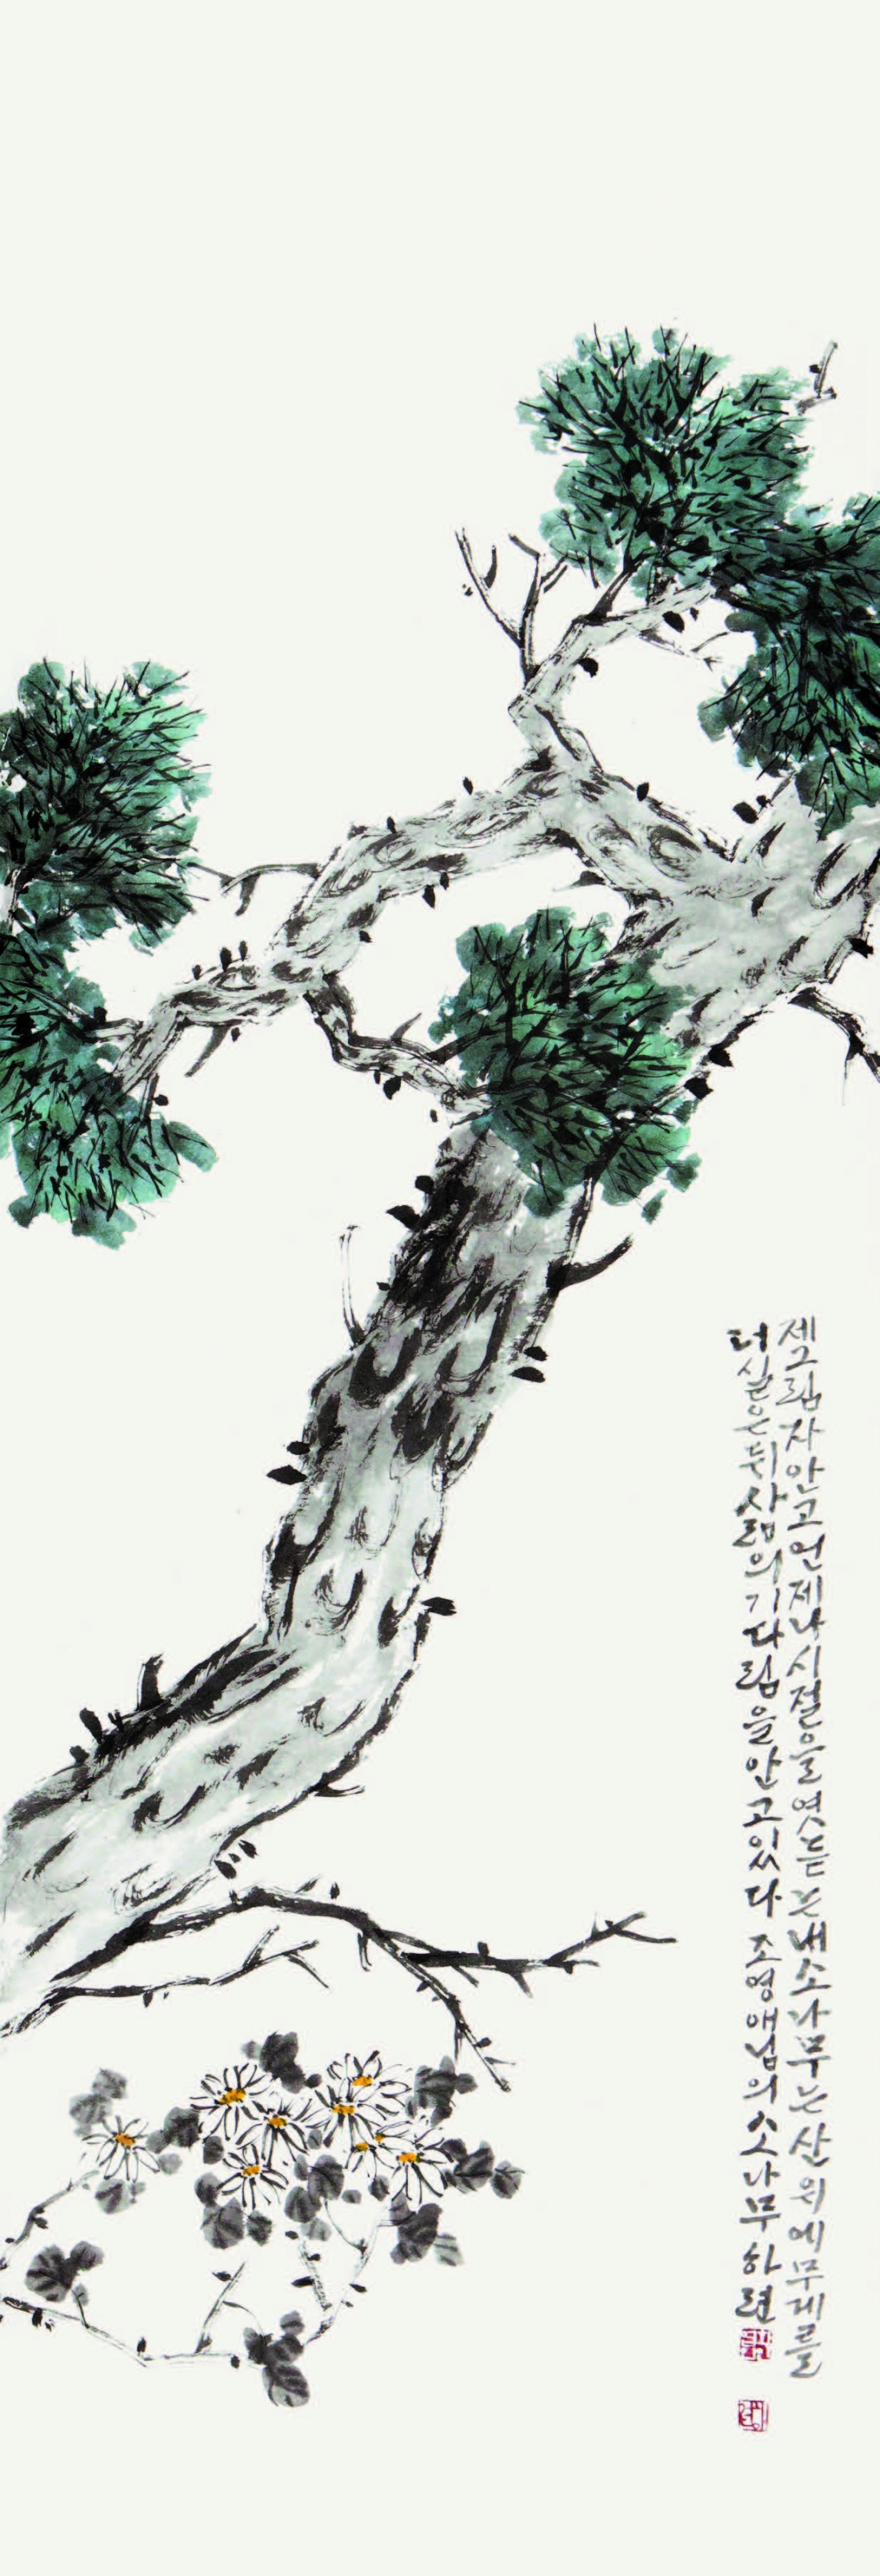 제그림자안고언제나시절을엿듣는내소나무는산위에무게를
더실은뒤삶의기다림을안고있다 조영애님의소나무 하련